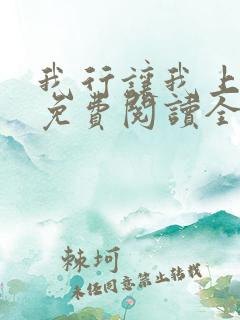 我行讓我上
免費閱讀全
棘坷
未经同意禁止转载